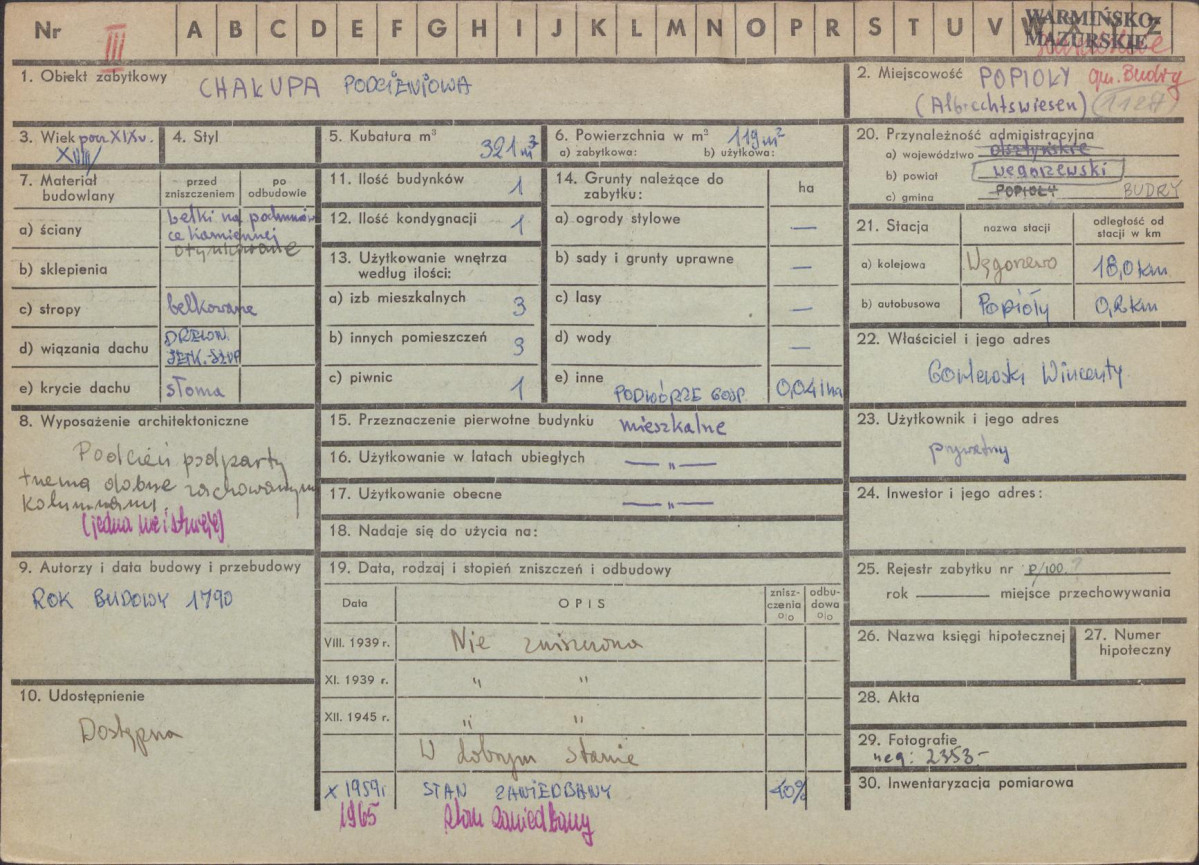 Nr III A B C D E F G H I J K L M N O P R S T U V W X Y Z
WARMIŃSKO-
MAZURSKIE
1. Obiekt zabytkowy CHAŁUPA PODCIENIOWA
2. Miejscowość POPIOŁY gm. Budry
(Albrechtswiesen)
3. Wiek pocz. XIX w.
XVIII
4. Styl
5. Kubatura m³ 321 m³
6. Powierzchnia w m² 119 m²
a) zabytkowa: b) użytkowa:
20. Przynależność administracyjna
a) województwo olsztyńskie
b) powiat węgorzewski
c) gmina POPIOŁY BUDRY
7. Materiał budowlany
przed zniszczeniem
po odbudowie
a) ściany belki na podmurów
ce kamiennej
otynkowane
b) sklepienia
c) stropy belkowane
d) wiązania dachu DREWN.
e) krycie dachu słoma
11. Ilość budynków 1
12. Ilość kondygnacji 1
13. Użytkowanie wnętrza
według ilości:
a) izb mieszkalnych 3
b) innych pomieszczeń 3
c) piwnic 1
14. Grunty należące do
zabytku: ha
a) ogrody stylowe —
b) sady i grunty uprawne —
c) lasy —
d) wody —
e) inne PODWÓRZE GOSP 0,041ha
21. Stacja
nazwa stacji
odległość od
stacji w km
a) kolejowa Węgorzewo 18,0 km
b) autobusowa Popioły 0,2 km
22. Właściciel i jego adres
Wincenty
8. Wyposażenie architektoniczne
Podcień podparty
trzema dobrze zachowanymi
kolumnami.
(jedna nie istnieje)
15. Przeznaczenie pierwotne budynku mieszkalne
16. Użytkowanie w latach ubiegłych — " —
17. Użytkowanie obecne — " —
18. Nadaje się do użycia na:
23. Użytkownik i jego adres
prywatny
24. Inwestor i jego adres:
9. Autorzy i data budowy i przebudowy
ROK BUDOWY 1790
19. Data, rodzaj i stopień zniszczeń i odbudowy
Data OPIS
znisz-
czenia
o|o
odbu-
dowa
o|o
VIII. 1939 r. Nie zniszczona
XI. 1939 r. " "
XII. 1945 r. " "
W dobrym stanie
X 1959 r STAN ZANIEDBANY 40%
1965 Stan zaniedbany
25. Rejestr zabytku nr P/100
rok miejsce przechowywania
26. Nazwa księgi hipotecznej
27. Numer
hipoteczny
10. Udostępnienie
Dostępna
28. Akta
29. Fotografie
neg: 2353-
30. Inwentaryzacja pomiarowa